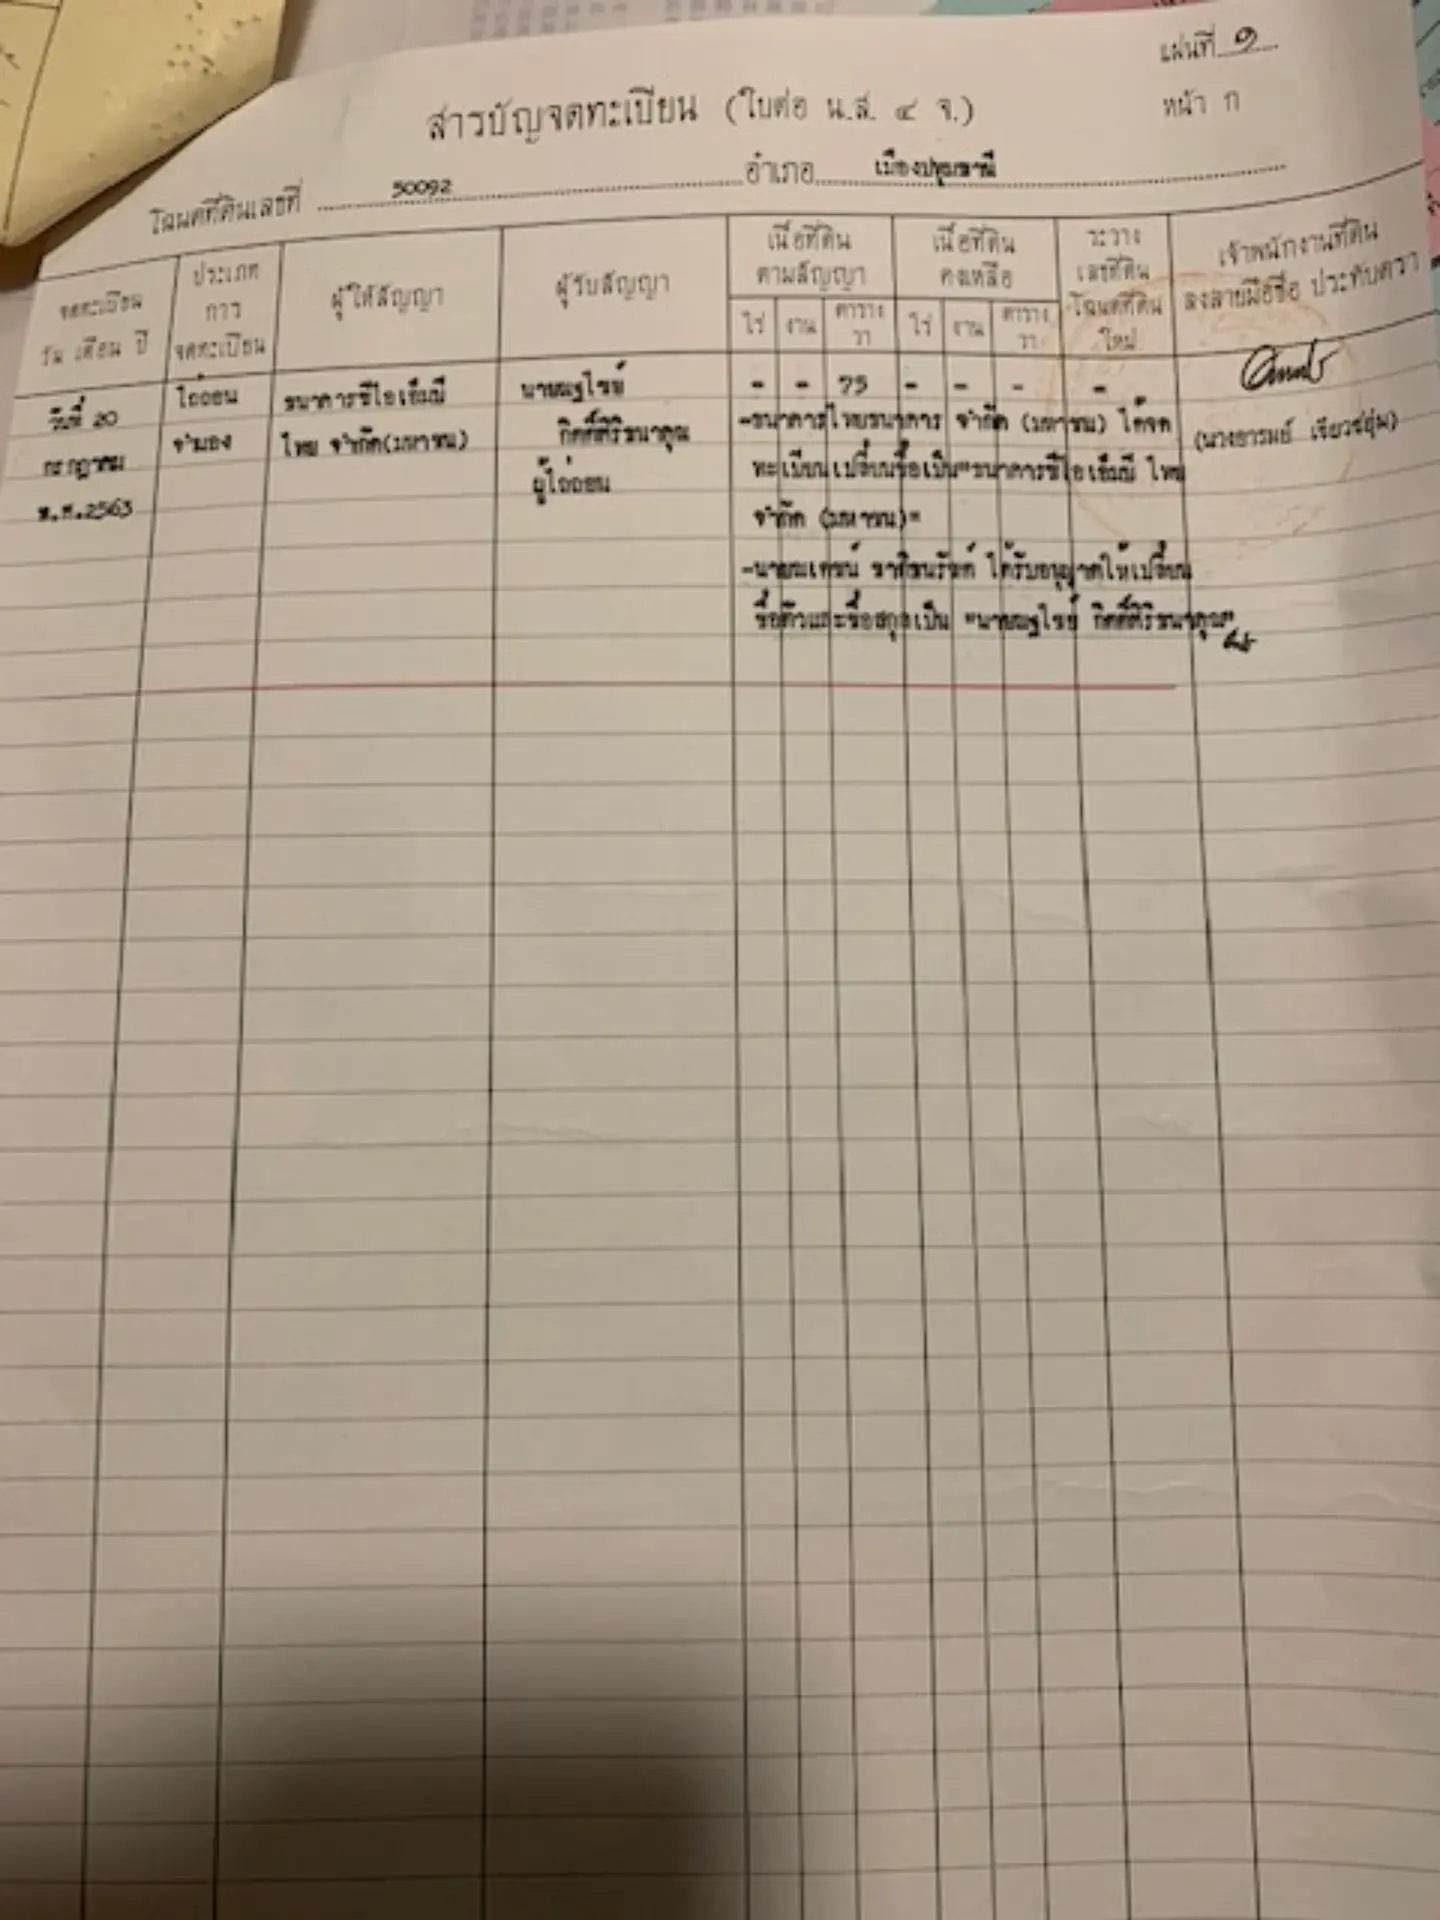 แผ่นที่ ๑
สารบัญจดทะเบียน (ใบต่อ น.ส. ๔ จ.)
หน้า ก
โฉนดที่ดินเลขที่ 50092 อำเภอ เมืองปทุมธานี
จดทะเบียน วัน เดือน ปี
ประเภท การ จดทะเบียน
ผู้ให้สัญญา
ผู้รับสัญญา
เนื้อที่ดิน ตามสัญญา
ไร่ งาน ตาราง วา
เนื้อที่ดิน คงเหลือ
ไร่ งาน ตาราง วา
ระวาง เลขที่ดิน โฉนดที่ดิน ใหม่
เจ้าพนักงานที่ดิน ลงลายมือชื่อ ประทับตรา
วันที่ 20
กรกฎาคม
พ.ศ.2563
ไถ่ถอน
จำนอง
ธนาคารซีไอเอ็มบี
ไทย จำกัด(มหาชน)
นายณฐไรย์
กิตติ์ศิริธนาคุณ
ผู้ไถ่ถอน
- - 75 - - - -
-ธนาคารไทยธนาคาร จำกัด (มหาชน) ได้จด
ทะเบียนเปลี่ยนชื่อเป็น"ธนาคารซีไอเอ็มบี ไทย
จำกัด (มหาชน)"
ได้รับอนุญาตให้เปลี่ยน
ชื่อตัวและชื่อสกุลเป็น "นายณฐไรย์ กิตติ์ศิริธนาคุณ"